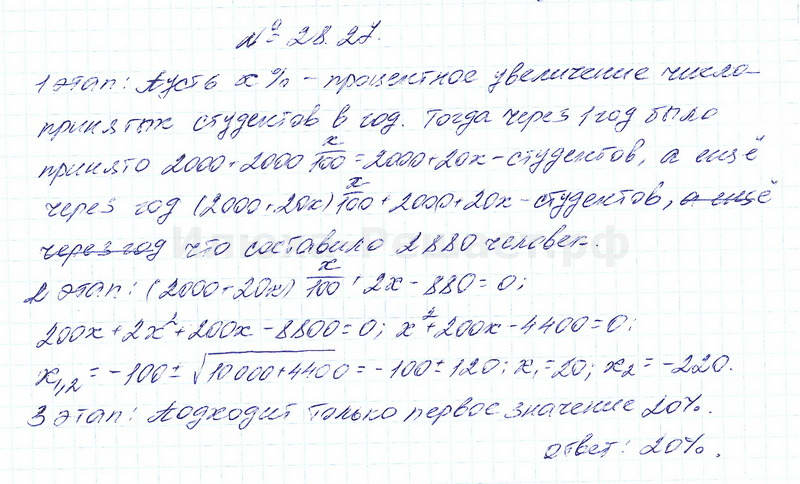 № 28.27.
1 этап: Пусть x % – процентное увеличение число
принятых студентов в год. Тогда через 1 год было
принято 2000+2000 x/100 = 2000+20x – студентов, а ещё
через год (2000+20x) x/100 + 2000+20x – студентов, а ещё
через год что составило 2880 человек.
2 этап: (2000+20x) x/100 + 2x – 880 = 0;
200x + 2x² + 200x – 8800 = 0; x² + 200x – 4400 = 0;
x₁,₂ = –100 ± √10000+4400 = –100 ± 120; x₁ = 20; x₂ = –220.
3 этап: Подходит только первое значение 20%.
Ответ: 20%.